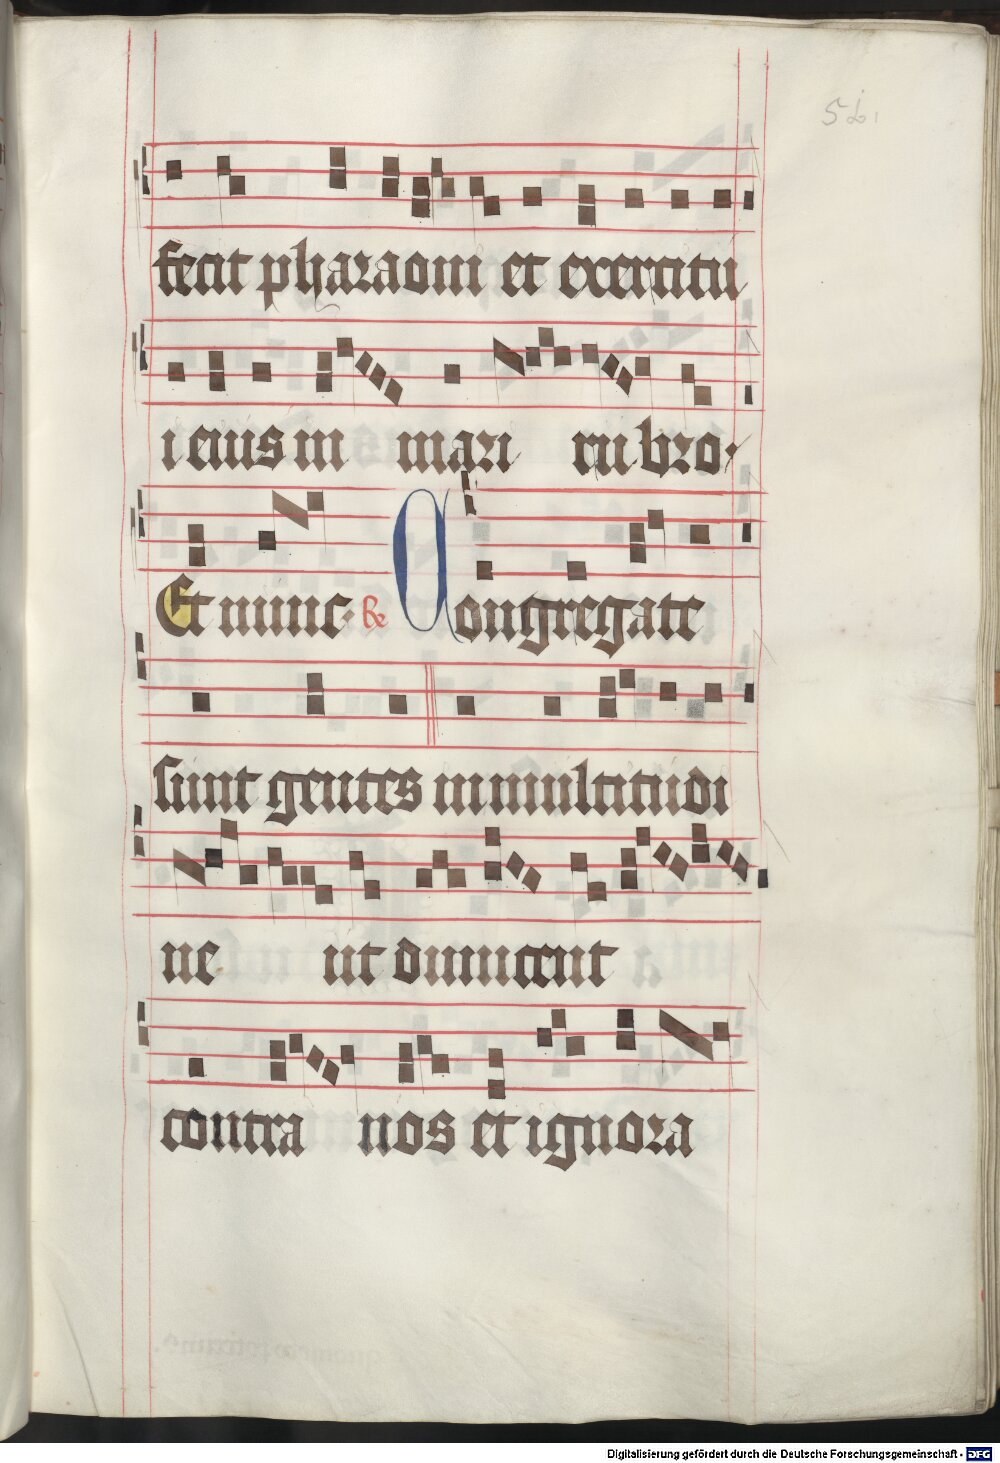 56.
fecit pharaoni et exercitu
i eius in mari rubro.
Et nunc. R Congregate
sunt gentes in multitudi
ne ut dimicent
contra nos et ignora
Digitalisierung gefördert durch die Deutsche Forschungsgemeinschaft - DFG